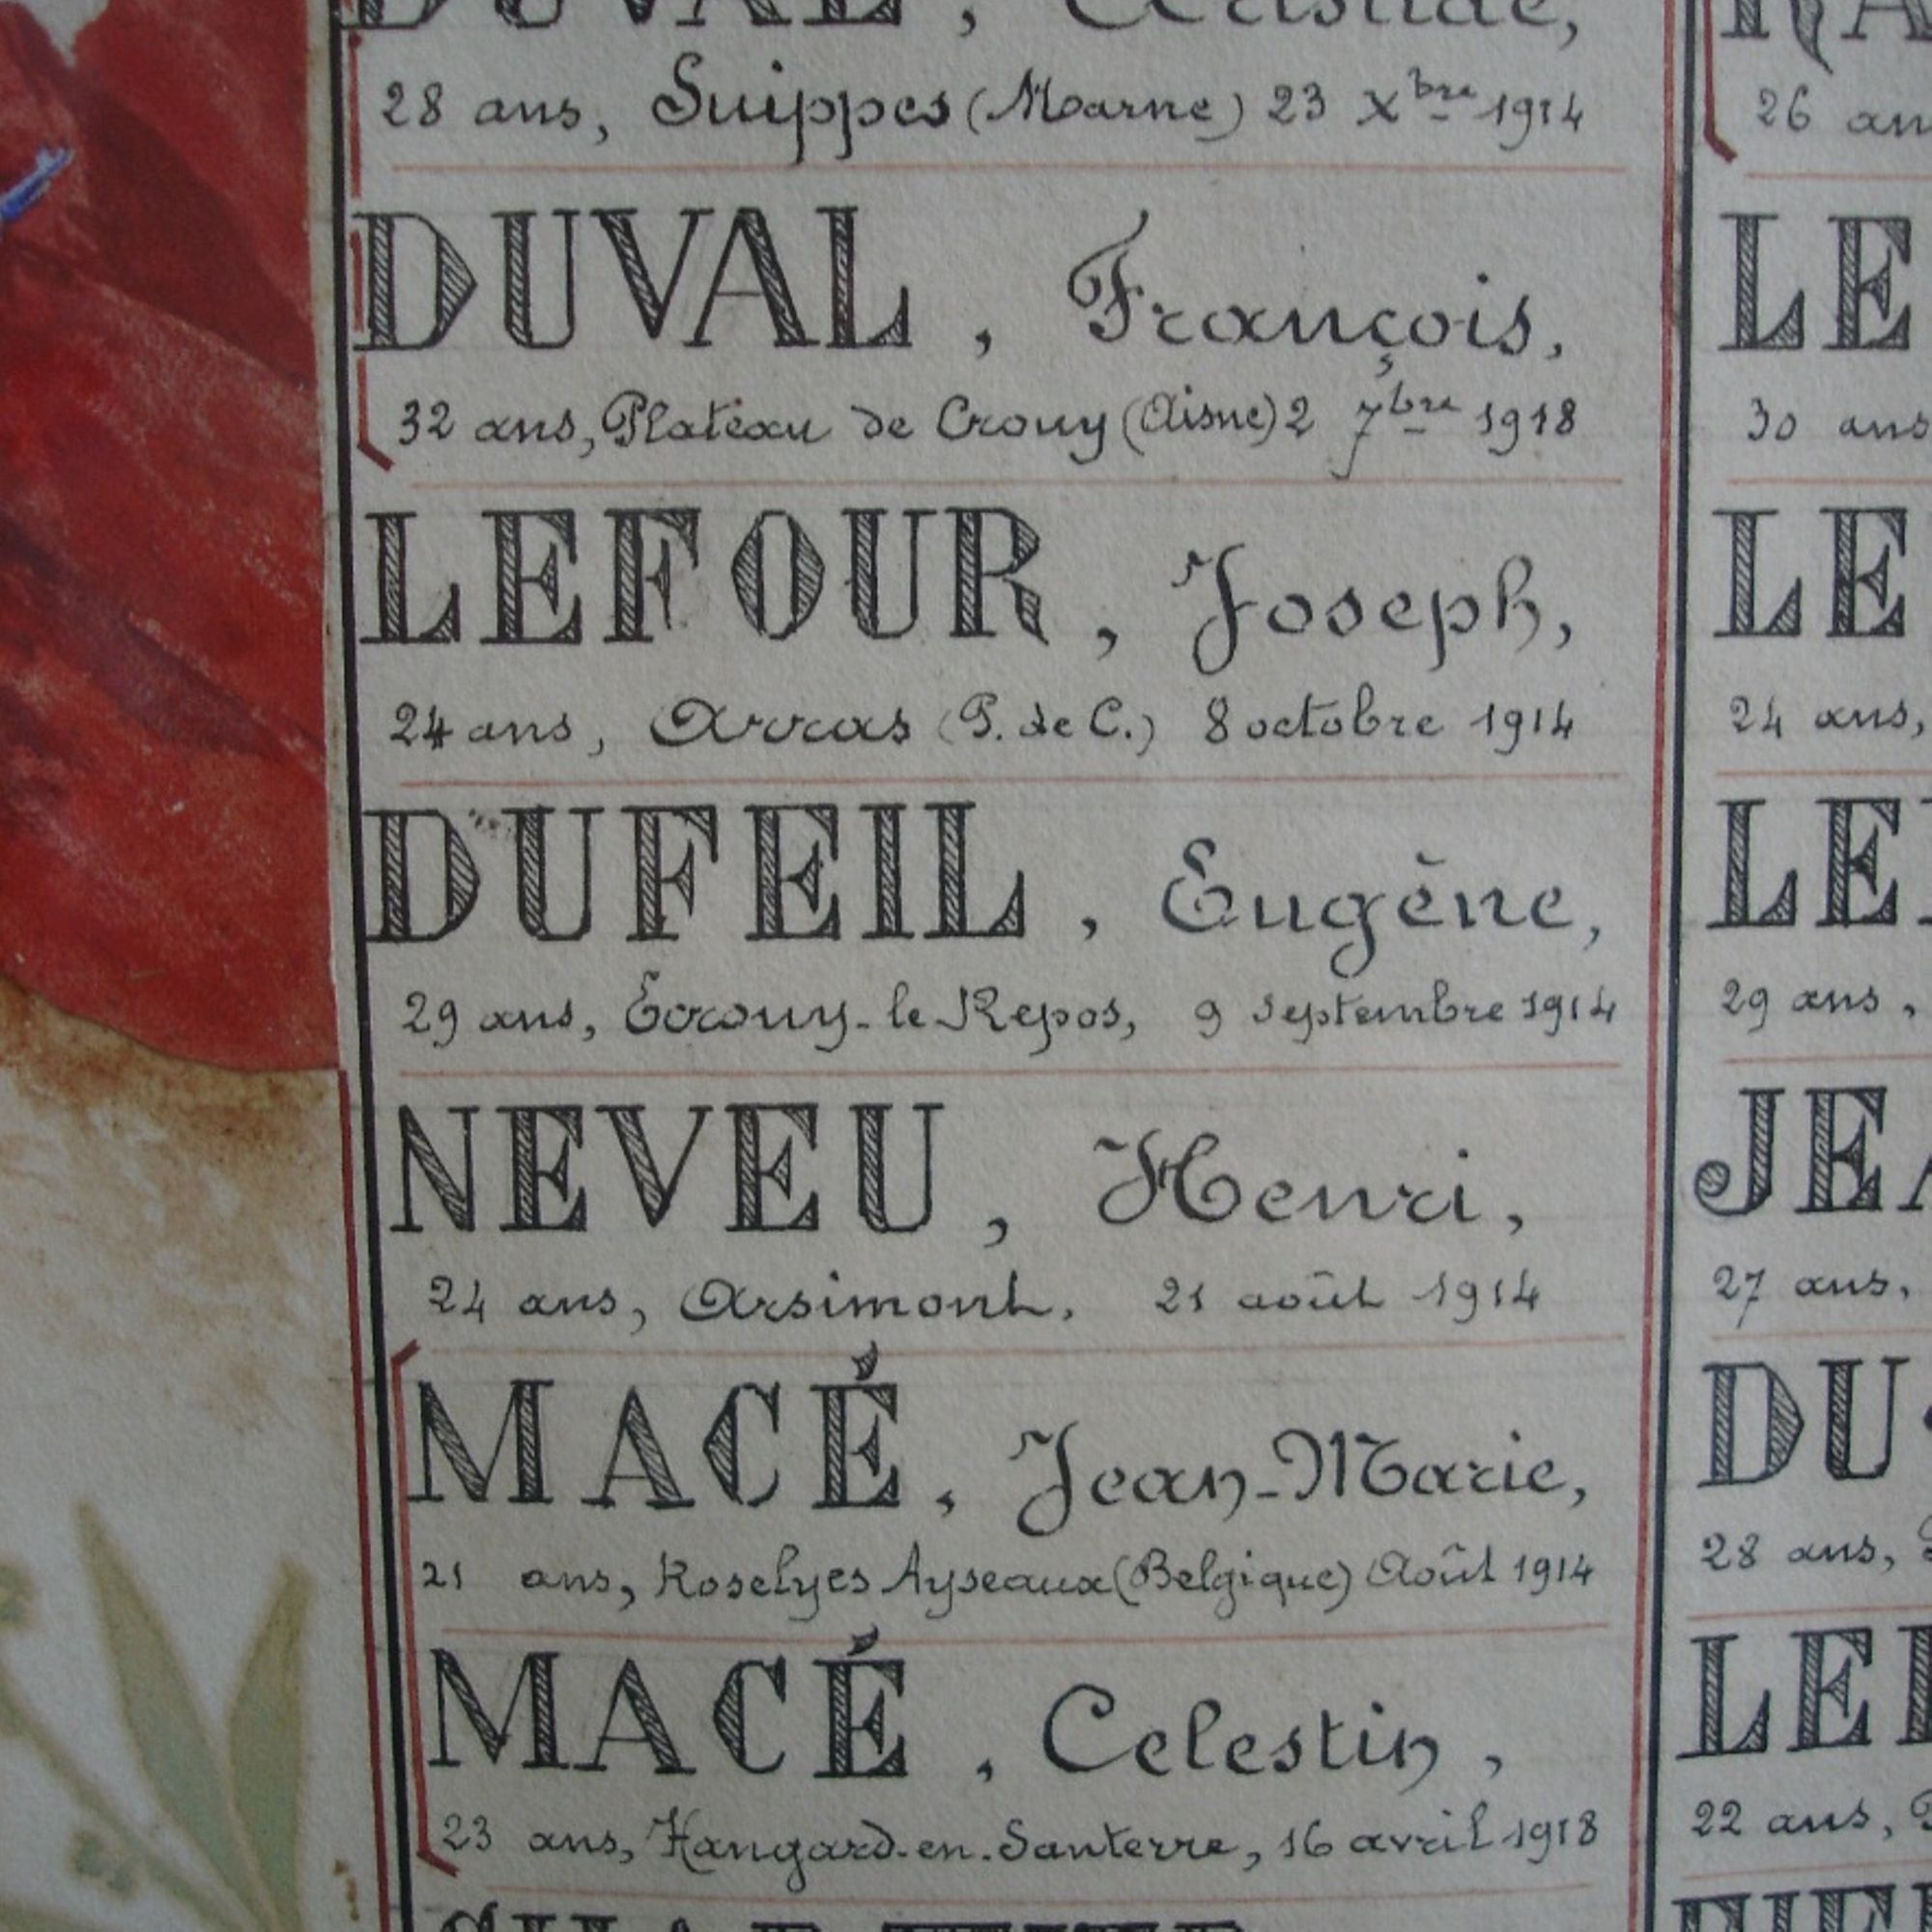 DUVAL, Aristide,
28 ans, Suippes (Marne) 23 Xbre 1914
DUVAL, François,
32 ans, Plateau de Crouy (Aisne) 2 7bre 1918
LEFOUR, Joseph,
24 ans, Arras (P. de C.) 8 octobre 1914
DUFEIL, Eugène,
29 ans, Écrouy-le Repos, 9 septembre 1914
NEVEU, Henri,
24 ans, Arsimont, 21 août 1914
MACÉ, Jean-Marie,
21 ans, Roselyes Ayseaux (Belgique) Août 1914
MACÉ, Celestin,
23 ans, Hangard-en-Santerre, 16 avril 1918
26 an
LE
30 ans
LE
24 ans,
LE
29 ans,
JEA
27 ans,
DU
28 ans,
LE
22 ans,